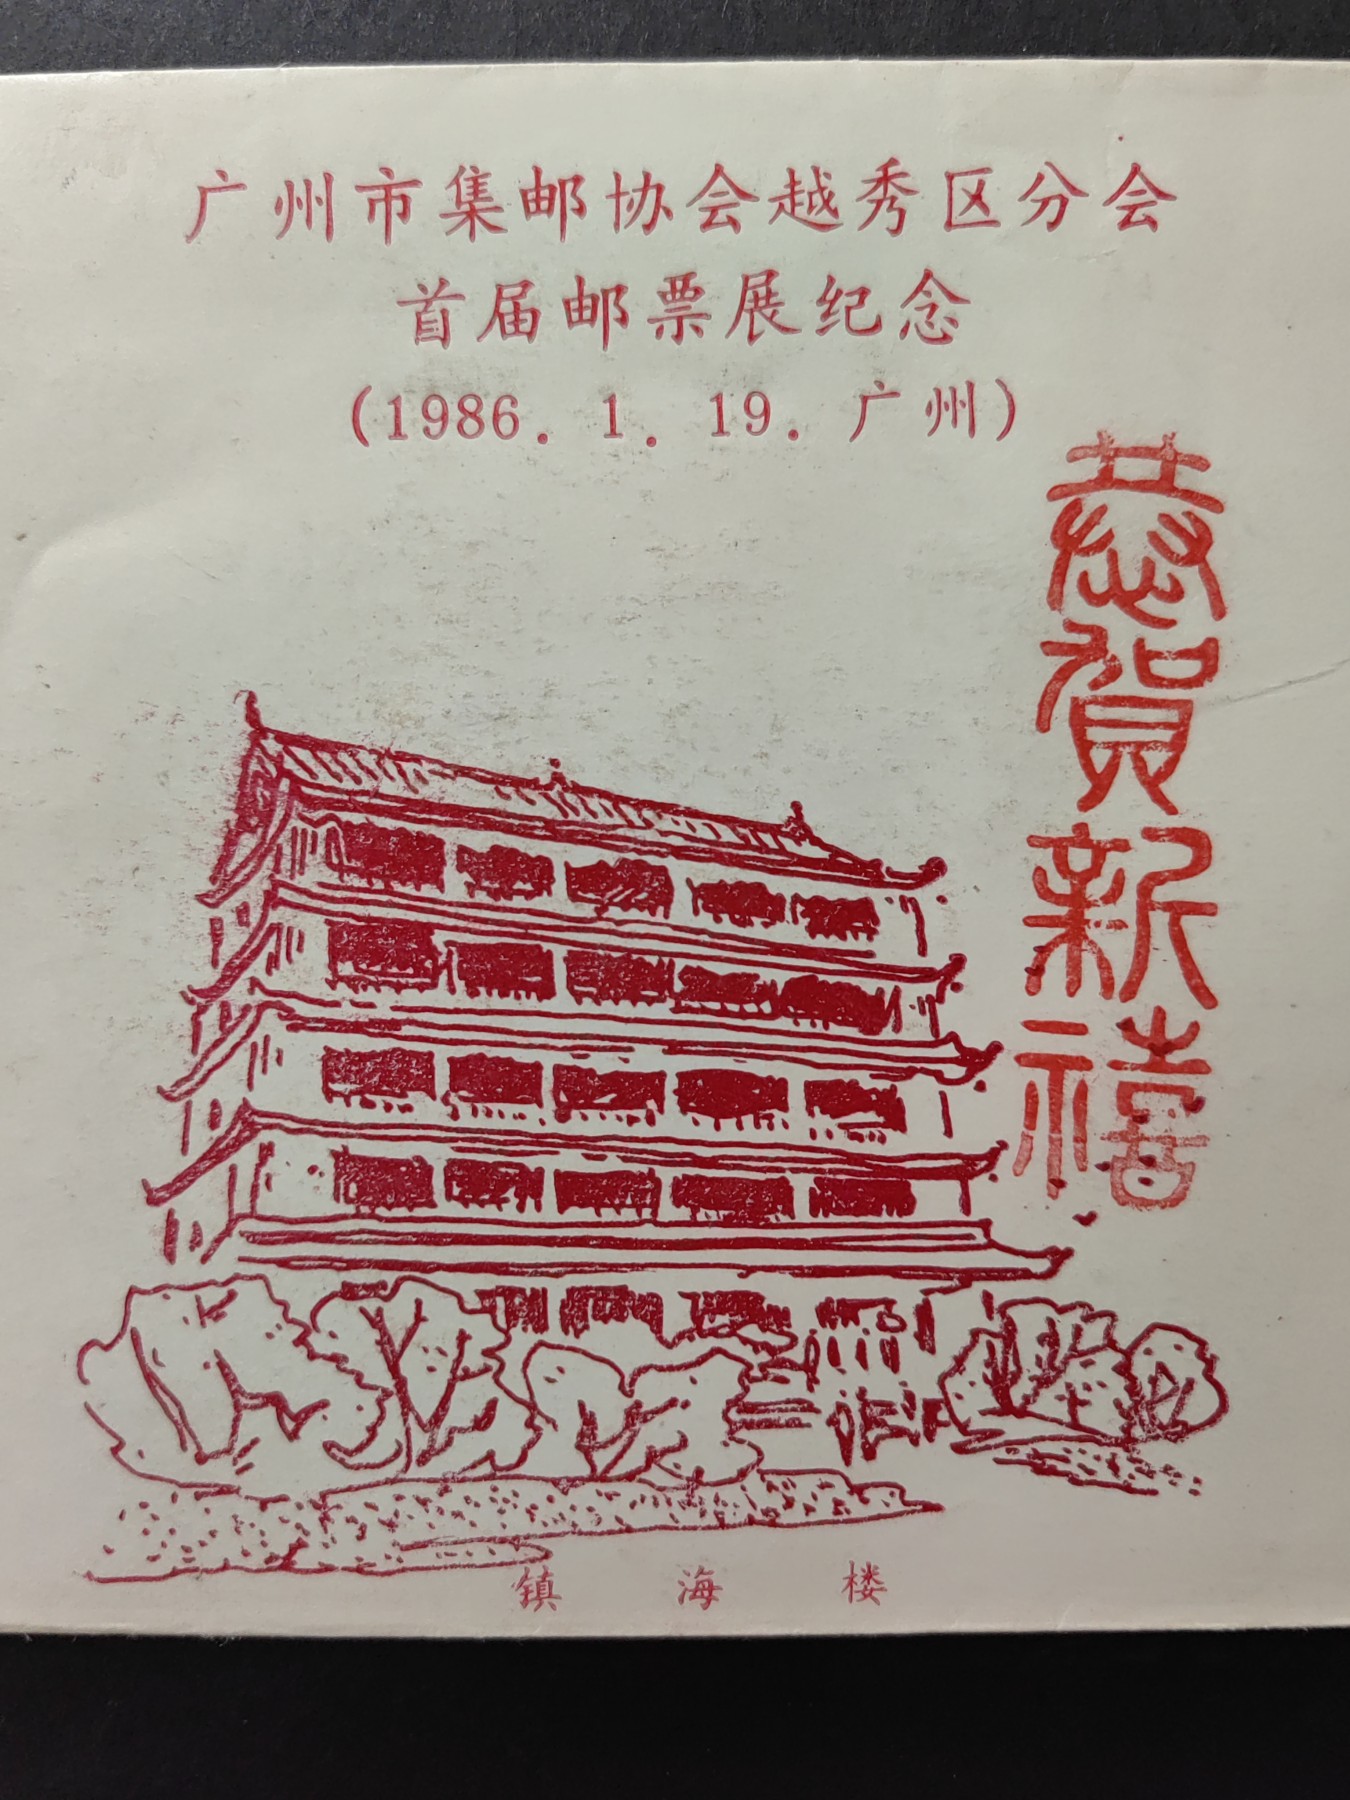 广州市集邮协会越秀区分会
首届邮票展纪念
(1986. 1. 19. 广州)
恭贺新禧
镇海楼